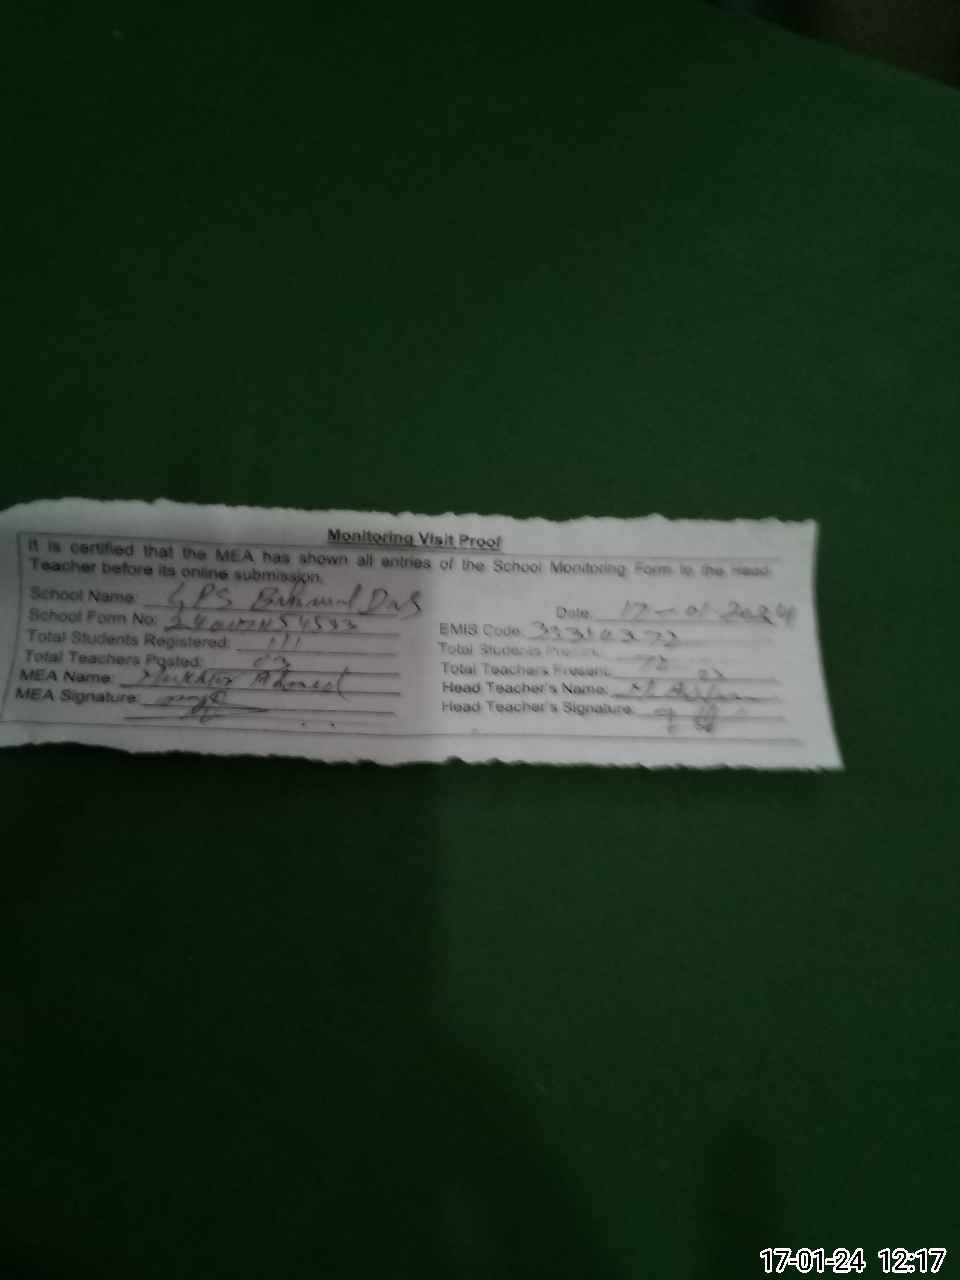 Monitoring Visit Proof
It is certified that the MEA has shown all entries of the School Monitoring Form to the Head
Teacher before its online submission.
School Name: GPS
Date: 17-01-2024
School Form No:
EMIS Code:
Total Students Registered: 111
Total Students Present: 72
Total Teachers Posted: 03
Total Teachers Present: 03
MEA Name: Ahmed
Head Teacher's Name:
MEA Signature:
Head Teacher's Signature:
17-01-24 12:17